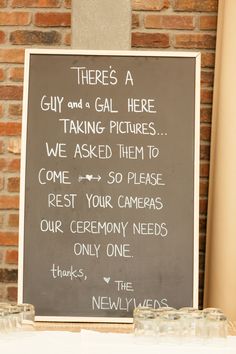 THERE'S A
GUY and a GAL HERE
TAKING PICTURES...
WE ASKED THEM TO
COME SO PLEASE
REST YOUR CAMERAS
OUR CEREMONY NEEDS
ONLY ONE.
thanks,
THE
NEWLYWEDS